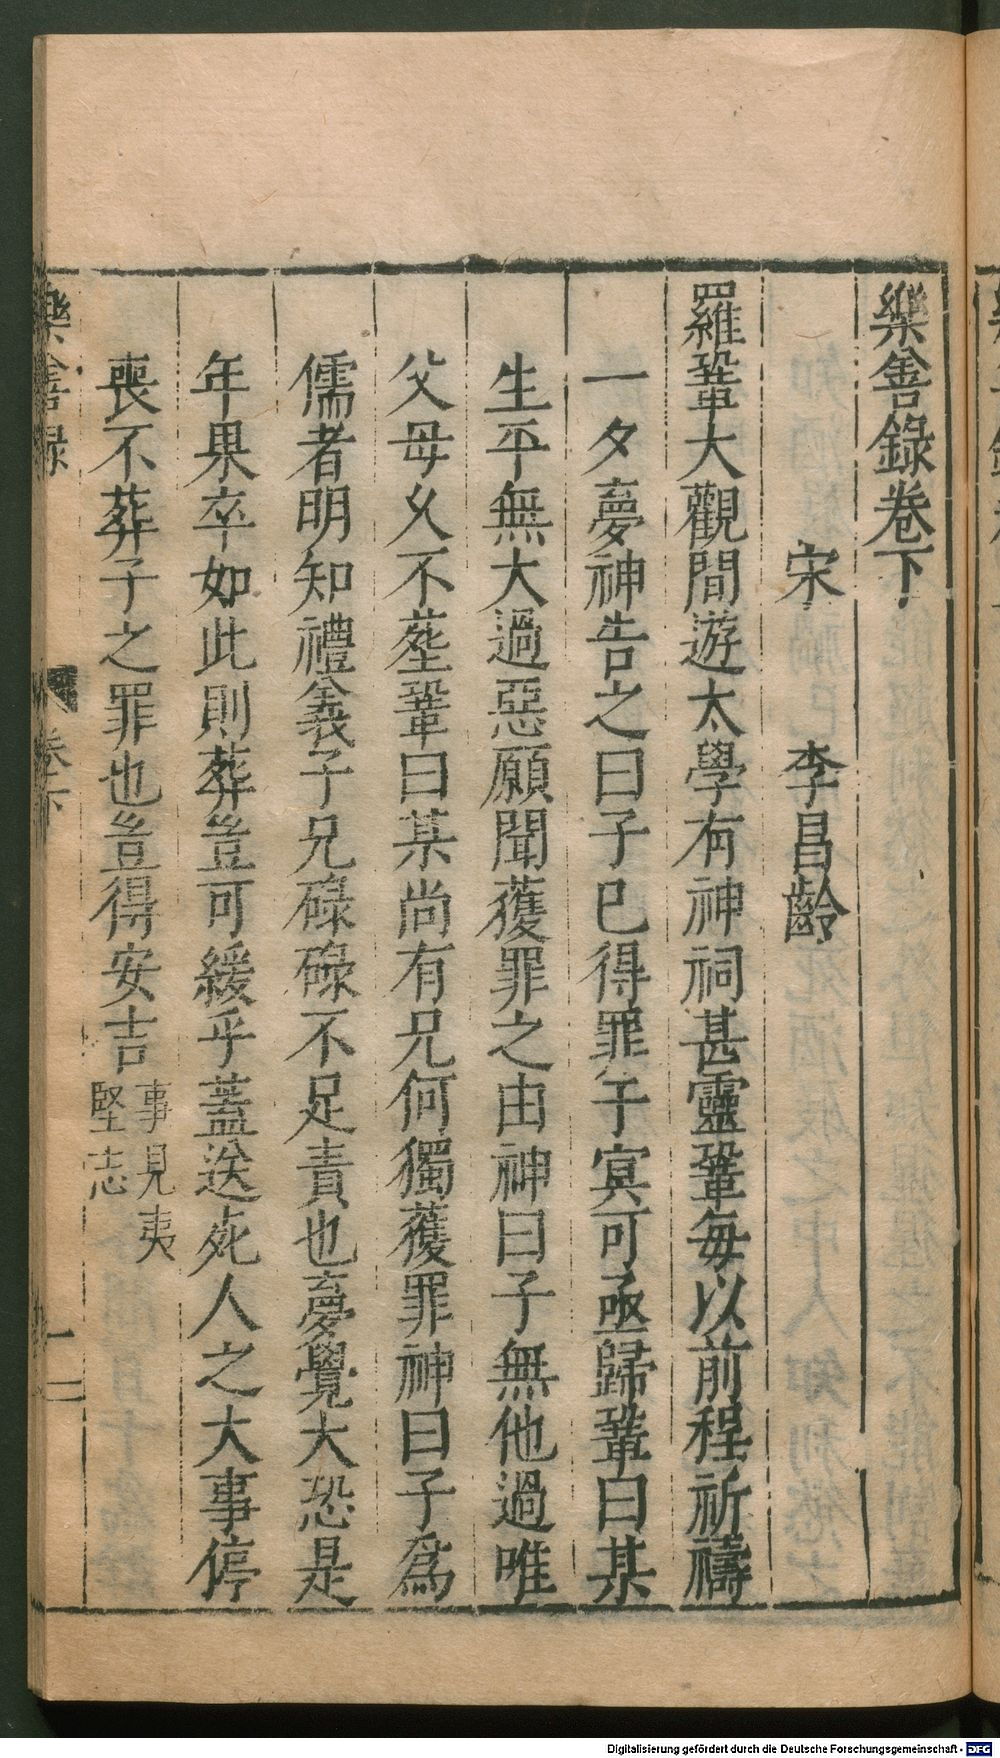 樂善錄卷下
宋 李昌齡
羅鞏大觀間遊太學有神祠甚靈鞏每以前程祈禱
一夕夢神告之曰子已得罪于冥可亟歸鞏曰某
生平無大過惡願聞獲罪之由神曰子無他過唯
父母久不塟鞏曰某尚有兄何獨獲罪神曰子爲
儒者明知禮義子兄碌碌不足責也夢覺大恐是
年果卒如此則葬豈可緩乎蓋送死人之大事停
喪不葬子之罪也豈得安吉事見夷
堅志
樂善録
卷下
一
Digitalisierung gefördert durch die Deutsche Forschungsgemeinschaft - DFG